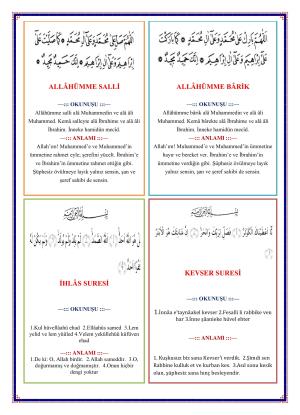 اَللّٰهُمَّ صَلِّ عَلٰى مُحَمَّدٍ وَعَلٰى اٰلِ مُحَمَّدٍ كَمَا صَلَّيْتَ عَلٰى
اِبْرٰهِيمَ وَعَلٰى اٰلِ اِبْرٰهِيمَ اِنَّكَ حَمِيدٌ مَجِيدٌ
ALLÂHÜMME SALLİ
—::: OKUNUŞU :::—
Allâhümme salli alâ Muhammedin ve alâ âli
Muhammed. Kemâ salleyte alâ İbrahime ve alâ âli
İbrahim. İnneke hamidün mecid.
—::: ANLAMI :::—
Allah'ım! Muhammed'e ve Muhammed'in
ümmetine rahmet eyle; şerefini yücelt. İbrahim'e
ve İbrahim'in ümmetine rahmet ettiğin gibi.
Şüphesiz övülmeye layık yalnız sensin, şan ve
şeref sahibi de sensin.
اَللّٰهُمَّ بَارِكْ عَلٰى مُحَمَّدٍ وَعَلٰى اٰلِ مُحَمَّدٍ كَمَا بَارَكْتَ
عَلٰى اِبْرٰهِيمَ وَعَلٰى اٰلِ اِبْرٰهِيمَ اِنَّكَ حَمِيدٌ مَجِيدٌ
ALLÂHÜMME BÂRİK
—::: OKUNUŞU :::—
Allâhümme bârik alâ Muhammedin ve alâ âli
Muhammed. Kemâ bârekte alâ İbrahime ve alâ âli
İbrahim. İnneke hamidün mecid.
—::: ANLAMI :::—
Allah'ım! Muhammed'e ve Muhammed'in ümmetine
hayır ve bereket ver. İbrahim'e ve İbrahim'in
ümmetine verdiğin gibi. Şüphesiz övülmeye layık
yalnız sensin, şan ve şeref sahibi de sensin.
İHLÂS SURESİ
—::: OKUNUŞU :::—
1.Kul hüvellâahü ehad 2.Elllahüs samed 3.Lem
yelid ve lem yüüled 4.Velem yekülllehüü küfüven
ehad
—::: ANLAMI :::—
1.De ki: O, Allah birdir. 2.Allah sameddir. 3.O,
doğurmamış ve doğmamıştır. 4.Onun hiçbir
dengi yoktur
KEVSER SURESİ
—::: OKUNUŞU :::—
1.İnnâa e'taynâakel kevser 2.Fesalli li rabbike ven
har 3.İnne şâanieke hüvel ebter
—::: ANLAMI :::—
1. Kuşkusuz biz sana Kevser'i verdik. 2.Şimdi sen
Rabbine kulluk et ve kurban kes. 3.Asıl sonu kesik
olan, şüphesiz sana hınç besleyendir.